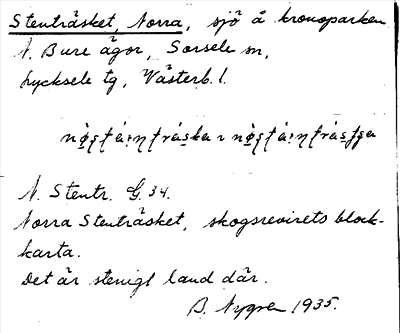 Stenträsket, Norra, sjö å kronoparken
N. Bure ägor, Sorsele sn,
Lycksele tg, Västerb. l.
N. Stentr. G. 34.
Norra Stenträsket, skogsrevirets block-
karta.
Det är stenigt land där.
B. Nygren 1935.